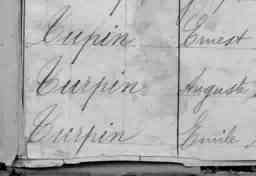 Turpin Ernest
Turpin Auguste
Turpin Emile